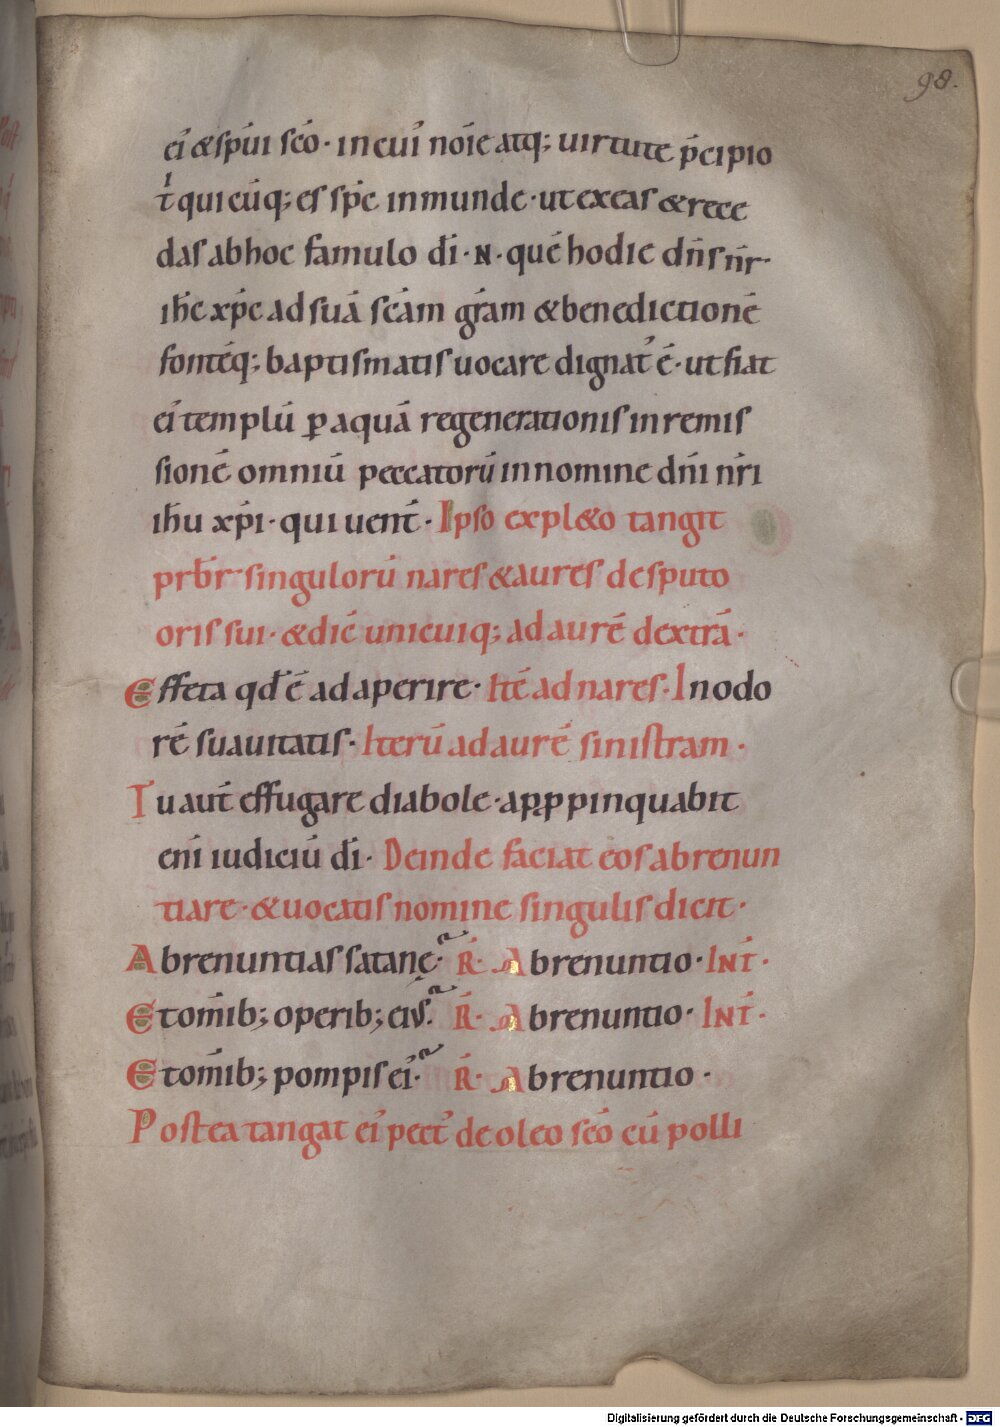 98.
ei᾽ & sp̄ui sc̄o · in cui᾽ noīe atq; uirtute p̄cipio
t̄ quicūq; es sp̄c inmunde · ut exeas & rece
das ab hoc famulo dī · N · quē hodie dn̄s nr̄ ·
ih̄c xp̄c ad suā sc̄am gr̄am & benedictionē
fontēq; baptismatis uocare dignat᾽ ē · ut fiat
ei᾽ templū ꝑ aquā regenerationis in remis
sionē omniū peccatorū in nomine dn̄i nr̄i
ih̄u xp̄i · qui uent̄ · Ipso expl&o tangit
prb̄r singulorū nares & aures de sputo
oris sui · & dic̄ unicuiq; ad aurē dextrā ·
Effeta qd̄ ē adaperire · Itē ad nares · In odo
rē suauitatis · Iterū ad aurē sinistram ·
Tu aut̄ effugare diabole · apꝓpinquabit
eni̅ iudiciū dī · Deinde faciat eos abrenun
tiare · & uocatis nomine singulis dicit ·
Abrenuntias satanę · R̄ · Abrenuntio · INT̄ ·
Et om̄ib; operib; eius · R̄ · Abrenuntio · INT̄ ·
Et om̄ib; pompis ei᾽ · R̄ · Abrenuntio ·
Postea tangat ei᾽ pect᾽ de oleo sc̄o cū polli
Digitalisierung gefördert durch die Deutsche Forschungsgemeinschaft - DFG